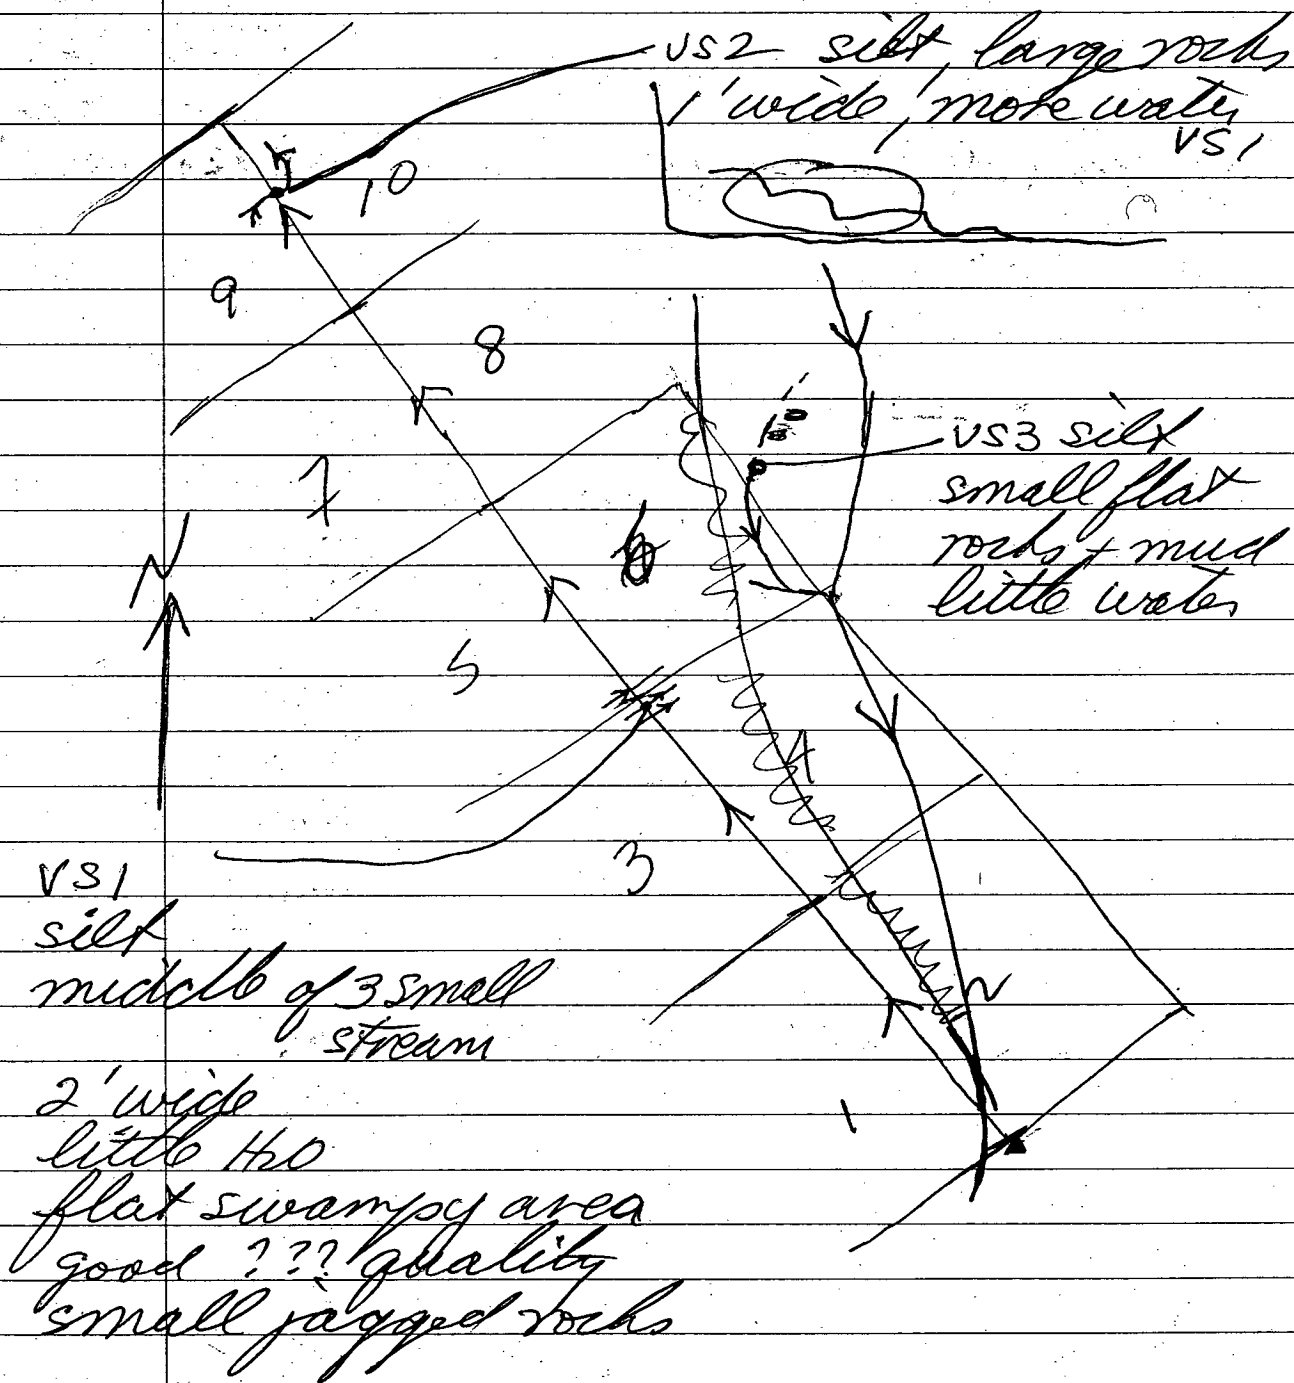 VS2 silt, large rocks
1' wide, more water
VS1
10
9
8
VS3 silt
small flat
rocks + mud
little water
7
6
N
5
4
3
VS1
silt
middle of 3 small
stream
2
2' wide
1
little H2O
flat swampy area
good ??? quality
small jagged rocks